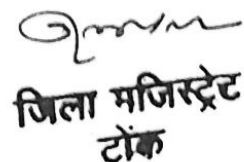 जिला मजिस्ट्रेट
टोंक